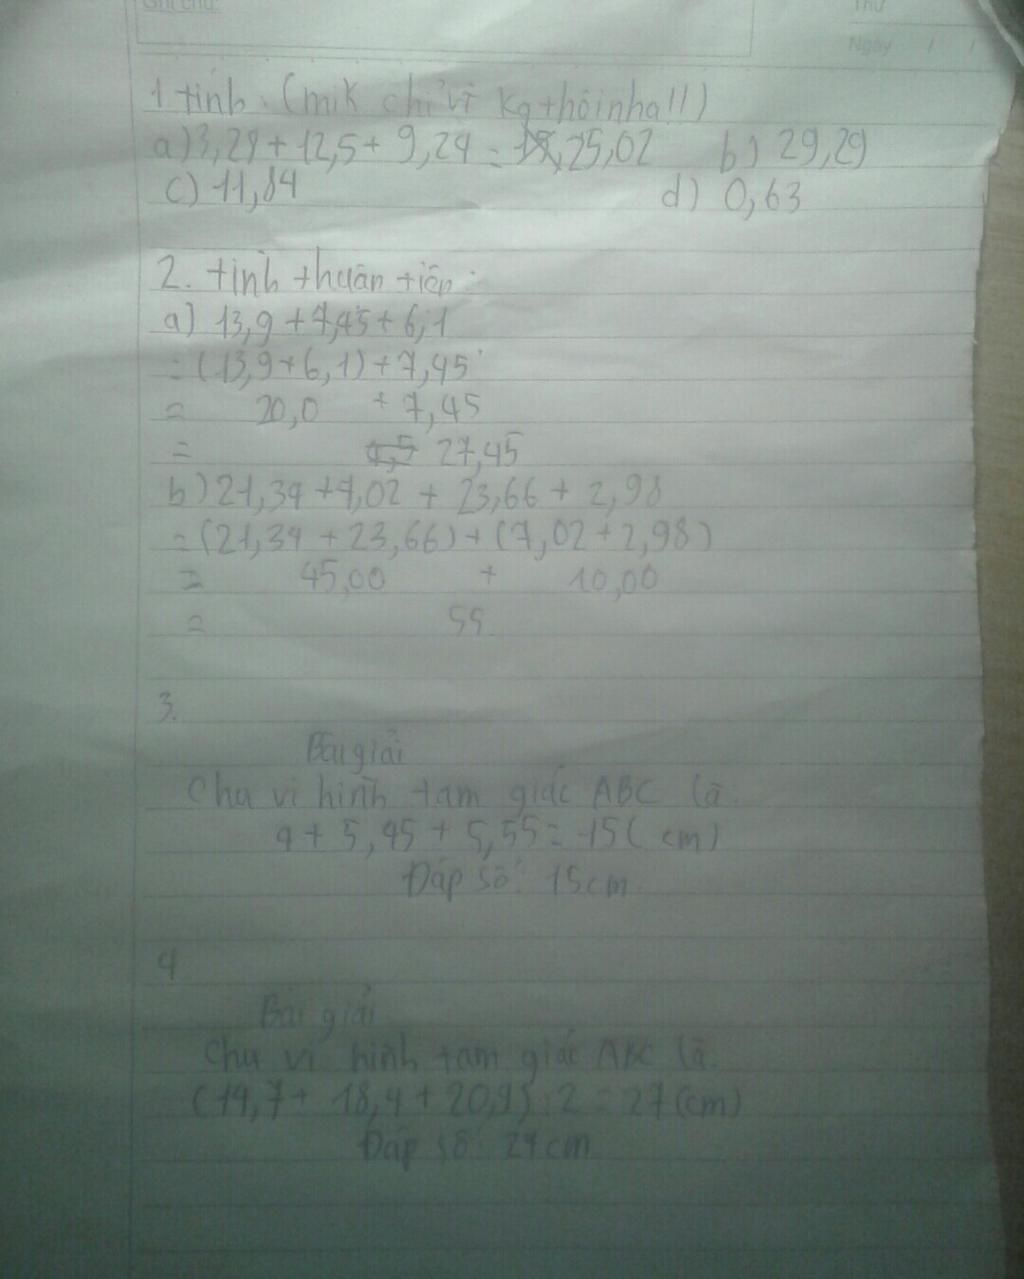 Ghi chú:
Thứ
Ngày / /
1 tính. (mik chỉ vì kq thôi nha!!)
a) 3,24 + 12,5 + 9,24 = 25,02 b) 29,29
c) 11,84 d) 0,63
2. tính thuận tiện:
a) 13,9 + 7,45 + 6,1
= (13,9 + 6,1) + 7,45
= 20,0 + 7,45
= 27,45
b) 21,34 + 7,02 + 23,66 + 2,98
= (21,34 + 23,66) + (7,02 + 2,98)
= 45,00 + 10,00
= 55
3.
Bài giải
Chu vi hình tam giác ABC là:
4 + 5,45 + 5,55 = 15 ( cm)
Đáp số: 15cm
4
Bài giải
Chu vi hình tam giác ABC là:
(14,7 + 18,4 + 20,9) : 2 = 27 (cm)
Đáp số: 27cm